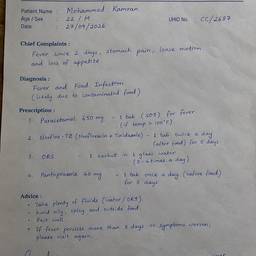 Patient Name : Mohammed Kamran
Age / Sex : 22 / M UHID No. CC/2687
Date : 27/09/2026
Chief Complaints :
Fever since 2 days, stomach pain, loose motion
and loss of appetite
Diagnosis :
Fever and Food Infection
(likely due to contaminated food)
Prescription :
1. Paracetamol 650 mg - 1 tab (SOS) for fever
(if temp > 100°F)
2. - TZ (Norfloxacin + Tinidazole) - 1 tab twice a day
(after food) for 5 days
3. ORS - 1 sachet in 1 glass water
(3-4 times a day)
4. Pantoprazole 40 mg - 1 tab once a day (before food)
for 5 days
Advice :
- Take plenty of fluids (water / ORS).
- Avoid oily, spicy and outside food.
- Rest well.
- If fever persists more than 3 days or symptoms worsen,
please visit again.